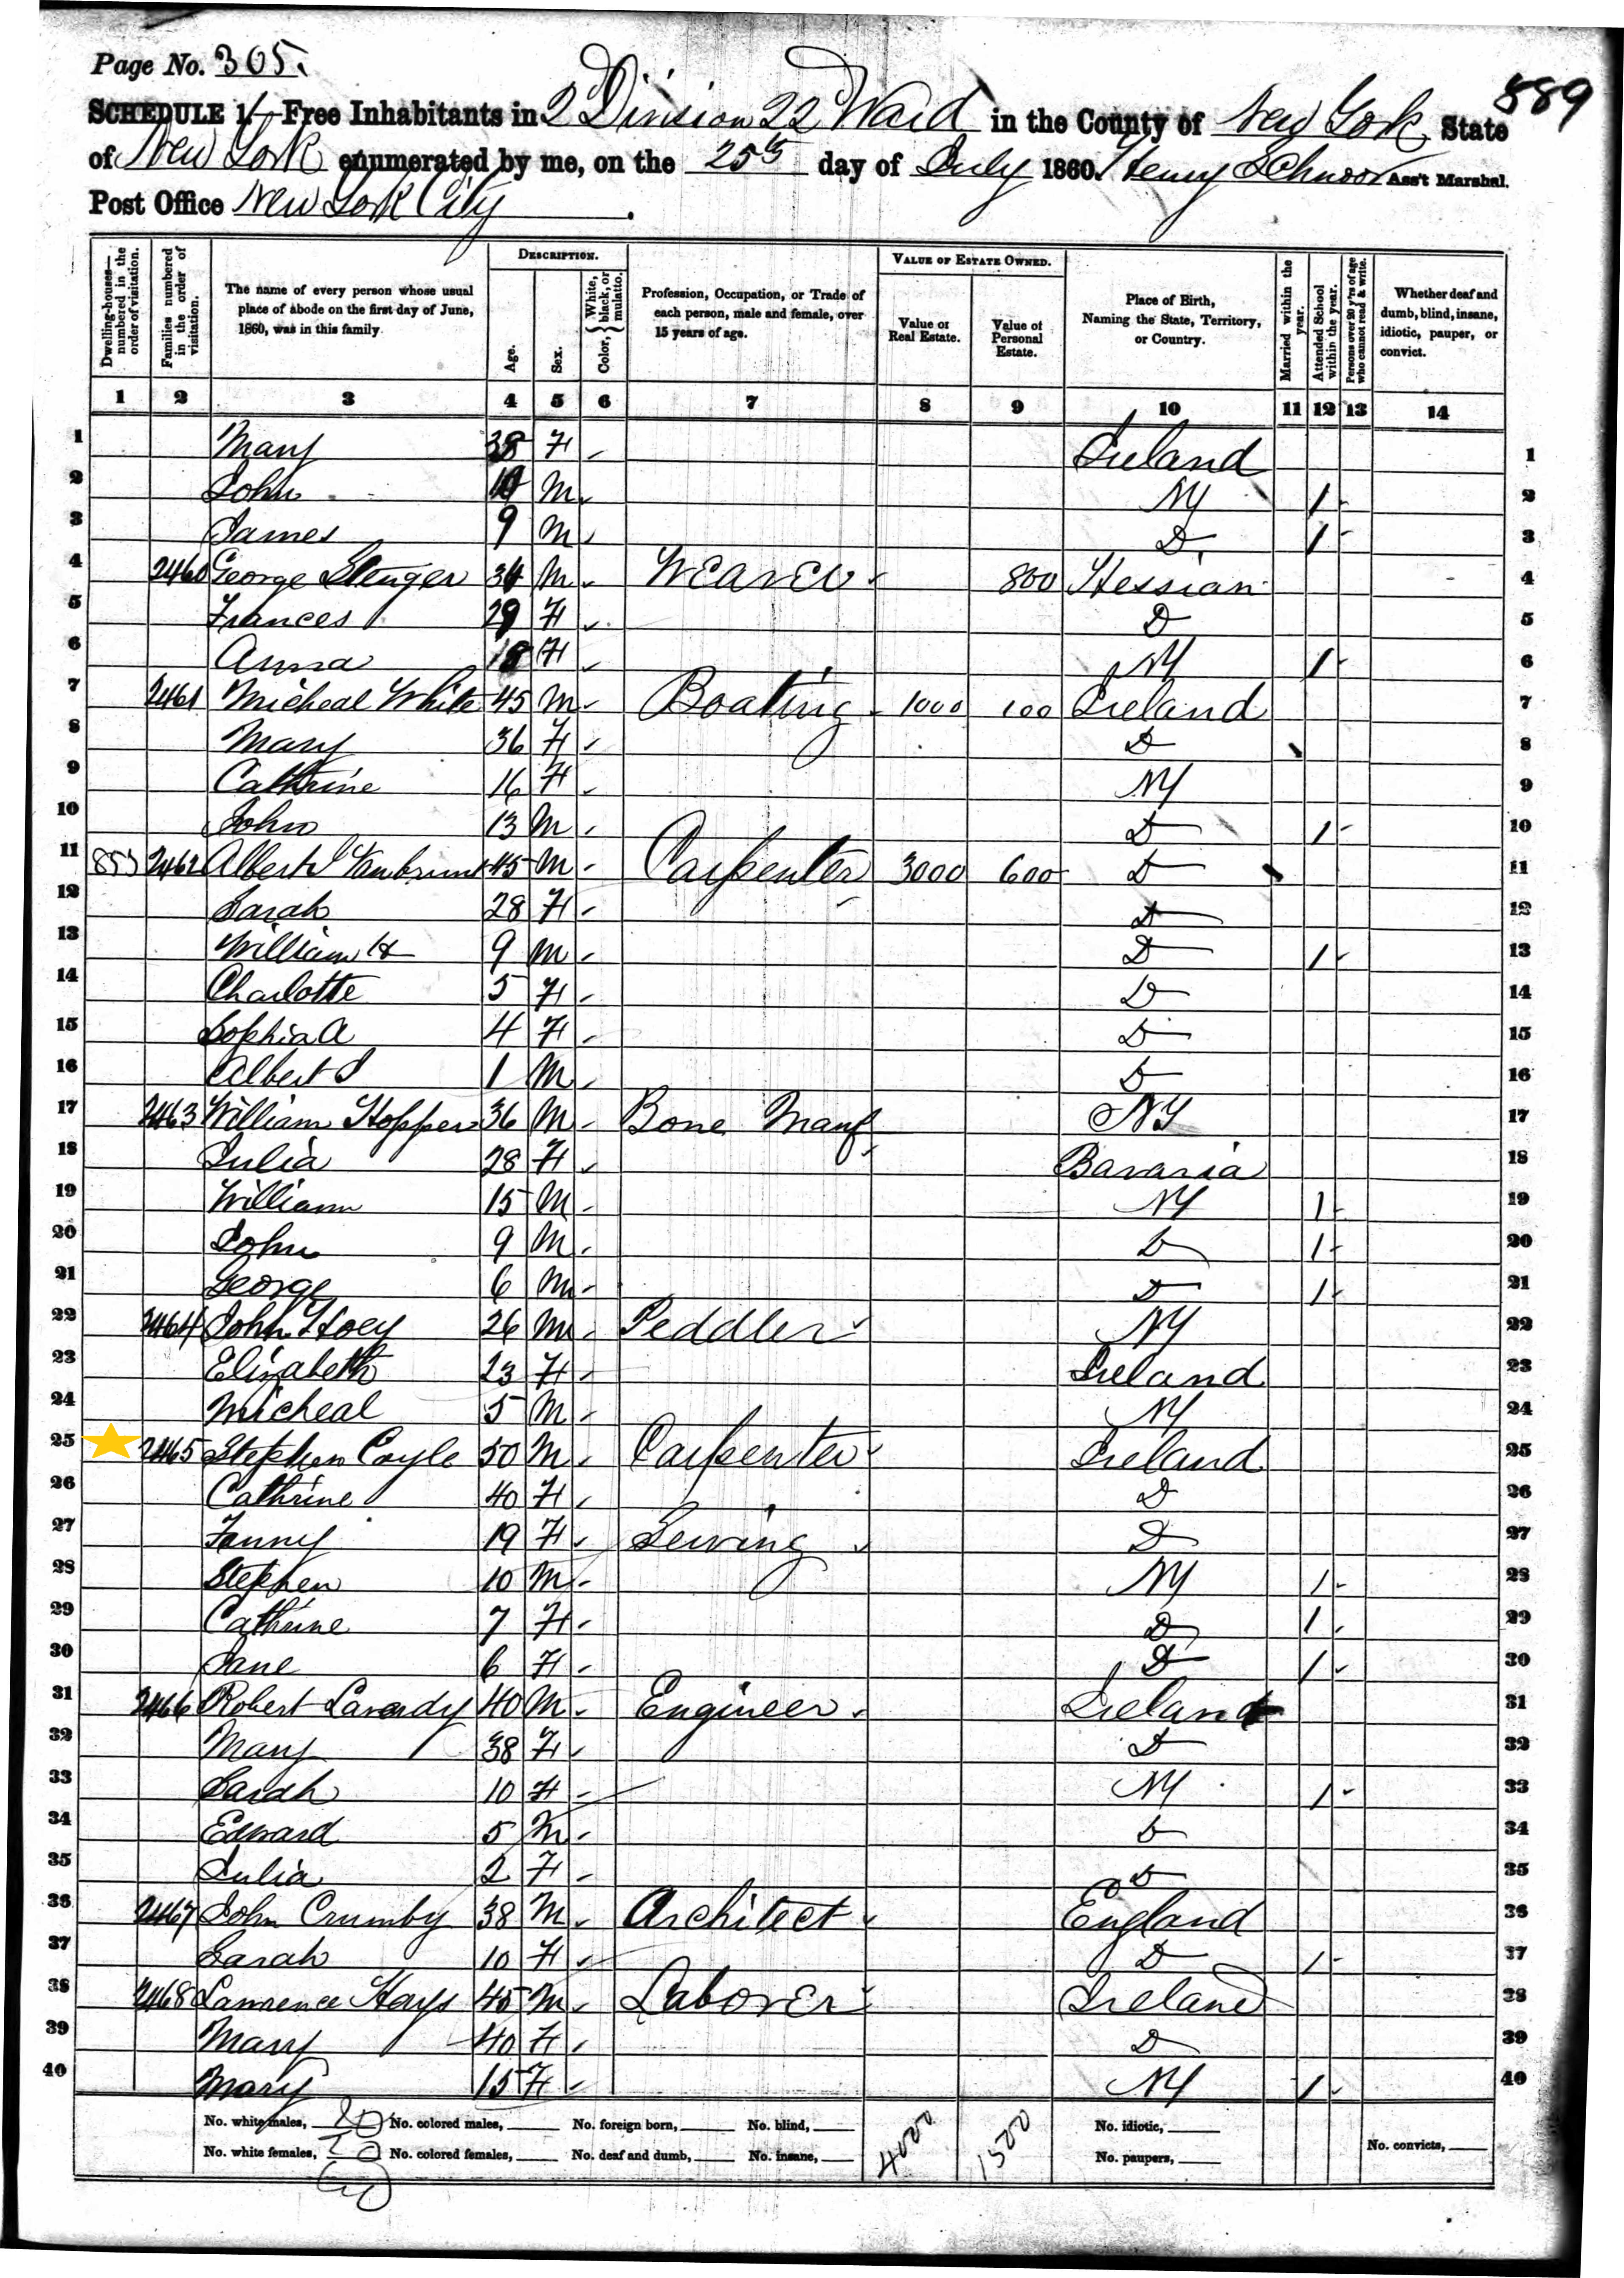 Page No. 305.
889
SCHEDULE 1.—Free Inhabitants in 2d Division 22 Ward in the County of New York State
of New York enumerated by me, on the 25th day of July 1860. Henry Schnoor Ass't Marshal.
Post Office New York City.
Dwelling-houses—numbered in the order of visitation.
Families numbered in the order of visitation.
The name of every person whose usual place of abode on the first day of June, 1860, was in this family.
DESCRIPTION.
Age.
Sex.
Color, { White, black, or mulatto.
Profession, Occupation, or Trade of each person, male and female, over 15 years of age.
VALUE OF ESTATE OWNED.
Value of Real Estate.
Value of Personal Estate.
Place of Birth, Naming the State, Territory, or Country.
Married within the year.
Attended School within the year.
Persons over 20 y'rs of age who cannot read & write.
Whether deaf and dumb, blind, insane, idiotic, pauper, or convict.
1 2 3 4 5 6 7 8 9 10 11 12 13 14
1 Mary 38 F Ireland 1
2 John 10 M NY / 2
3 James 9 M D / 3
4 2460 George Stenger 34 M Weaver 800 Hessian 4
5 Frances 29 F D 5
6 Anna 18 F NY / 6
7 2461 Micheal White 45 M Boating 1000 100 Ireland 7
8 Mary 36 F D 8
9 Cathrine 16 F NY 9
10 John 13 M D / 10
11 853 2462 Albert Vanbrunt 45 M Carpenter 3000 600 D 11
12 Sarah 28 F D 12
13 William H 9 M D / 13
14 Charlotte 5 F D 14
15 Sophia A 4 F D 15
16 Albert S 1 M D 16
17 2463 William Hopper 36 M Bone Manf NY 17
18 Julia 28 F Bavaria 18
19 William 15 M NY / 19
20 John 9 M D / 20
21 George 6 M D / 21
22 2464 John Hoey 26 M Peddler NY 22
23 Elizabeth 23 F Ireland 23
24 Micheal 5 M NY 24
25 2465 Stephen Coyle 50 M Carpenter Ireland 25
26 Cathrine 40 F D 26
27 Fanny 19 F Sewing D 27
28 Stephen 10 M NY / 28
29 Cathrine 7 F D / 29
30 Jane 6 F D / 30
31 2466 Robert 40 M Engineer Ireland 31
32 Mary 38 F D 32
33 Sarah 10 F NY / 33
34 Edward 5 M D 34
35 Julia 2 F D 35
36 2467 John Crumby 38 M Architect England 36
37 Sarah 10 F D / 37
38 2468 Lawrence Hays 45 M Laborer Ireland 38
39 Mary 40 F D 39
40 Mary 15 F NY / 40
No. white males, 20 No. colored males, No. foreign born, No. blind, 4000 1500 No. idiotic,
No. white females, 20 No. colored females, No. deaf and dumb, No. insane, No. paupers, No. convicts,
40